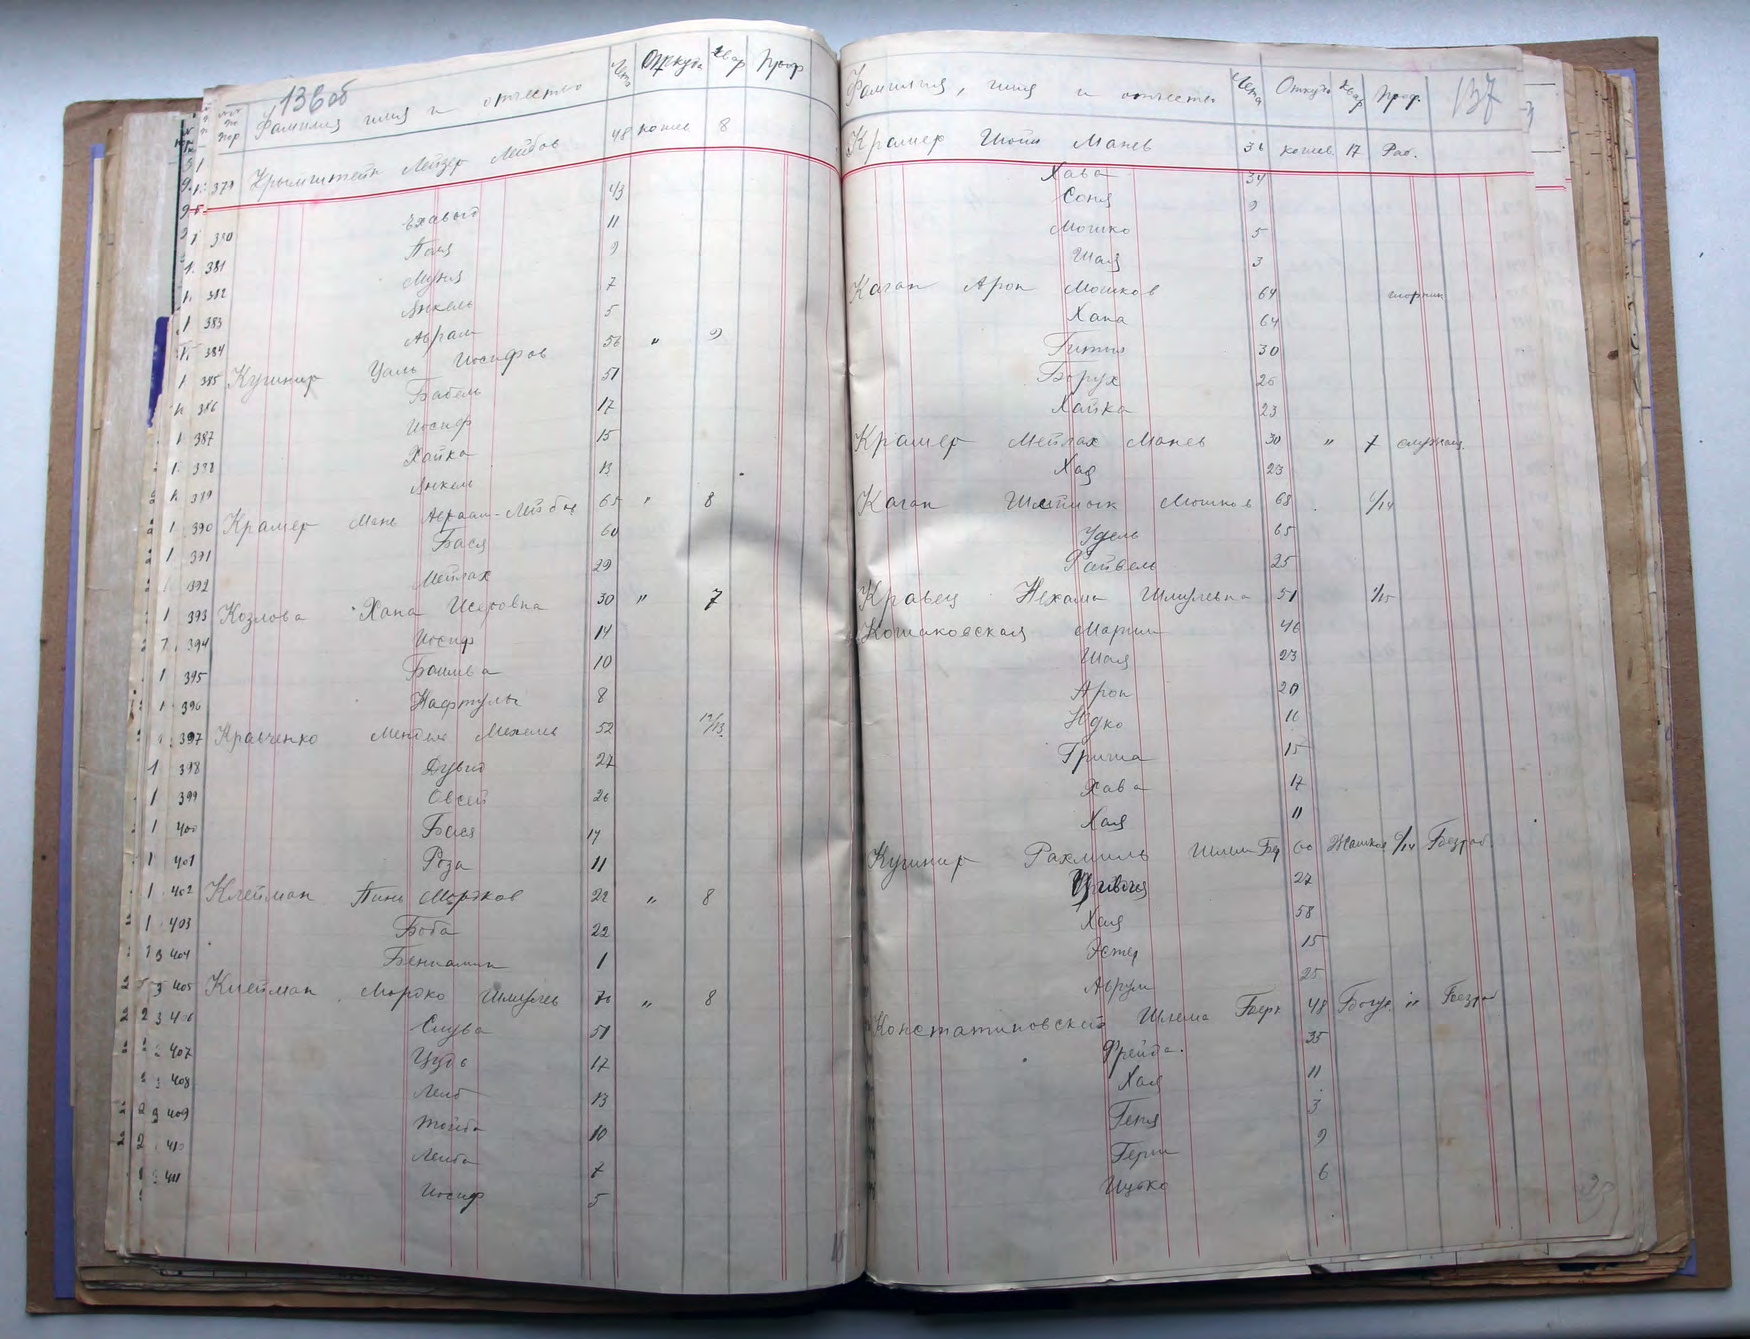 136об
Фамилия имя и отчество Лета Откуда Квар Проф
379 Крымштейн Лейзер Лейбов 48 кошев 8
43
380 Поля 11
381 Муня 9
382 Янкель 7
383 Абрам 5
384 Кушнир Иосифов 56 " 9
385 Бабель 51
386 Иосиф 17
387 Хайка 15
388 Янкель 13
389 Крамер Мань Абрам-Лейбов 65 " 8
390 Бася 60
391 Мейлах 29
392 Козлова Хана Исеровна 30 " 7
393 Иосиф 14
394 Башива 10
395 Нафтула 8
396 Кравченко Мендель Мехелев 52 12/13
397 Дувид 27
398 Овсей 26
399 Бася 17
400 Роза 11
401 Клейман Пинь Мордков 22 " 8
402 Боба 22
403 Бениамин 1
404 Клейман Мордко Шмулев 70 " 8
405 Слува 51
406 Цудь 17
407 Лейб 13
408 Тойба 10
409 Лейба 7
410 Иосиф 5
411
137
Фамилия, имя и отчество Лета Откуда Квар Проф.
Крамер Шойл Манев 36 кошев. 17 Раб.
Хава 34
Соня 9
Мошко 5
Шая 3
Каган Арон Мошков 64
Хана 64
Гитля 30
Борух 26
Хайка 23
Крамер Мейлах Манев 30 " 7 служащ.
Хая 23
Каган Мошков 68 6/14
Удель 65
Файвель 25
Кравец Нехама Шмулевна 51 6/15
Кошаковская Мариам 46
Шая 23
Арон 20
Юдко 16
Гриша 15
Хава 17
Хая 11
Кушнир Рахмиль Шлим Бер 60 Жашков 6/14 Безраб.
27
Хая 58
Эстер 15
Аврум 25
Константиновский Шлема Берк 48 Богус. " Безраб
Фрейда. 35
Хая 11
Геня 3
Герш 9
Ицько 6